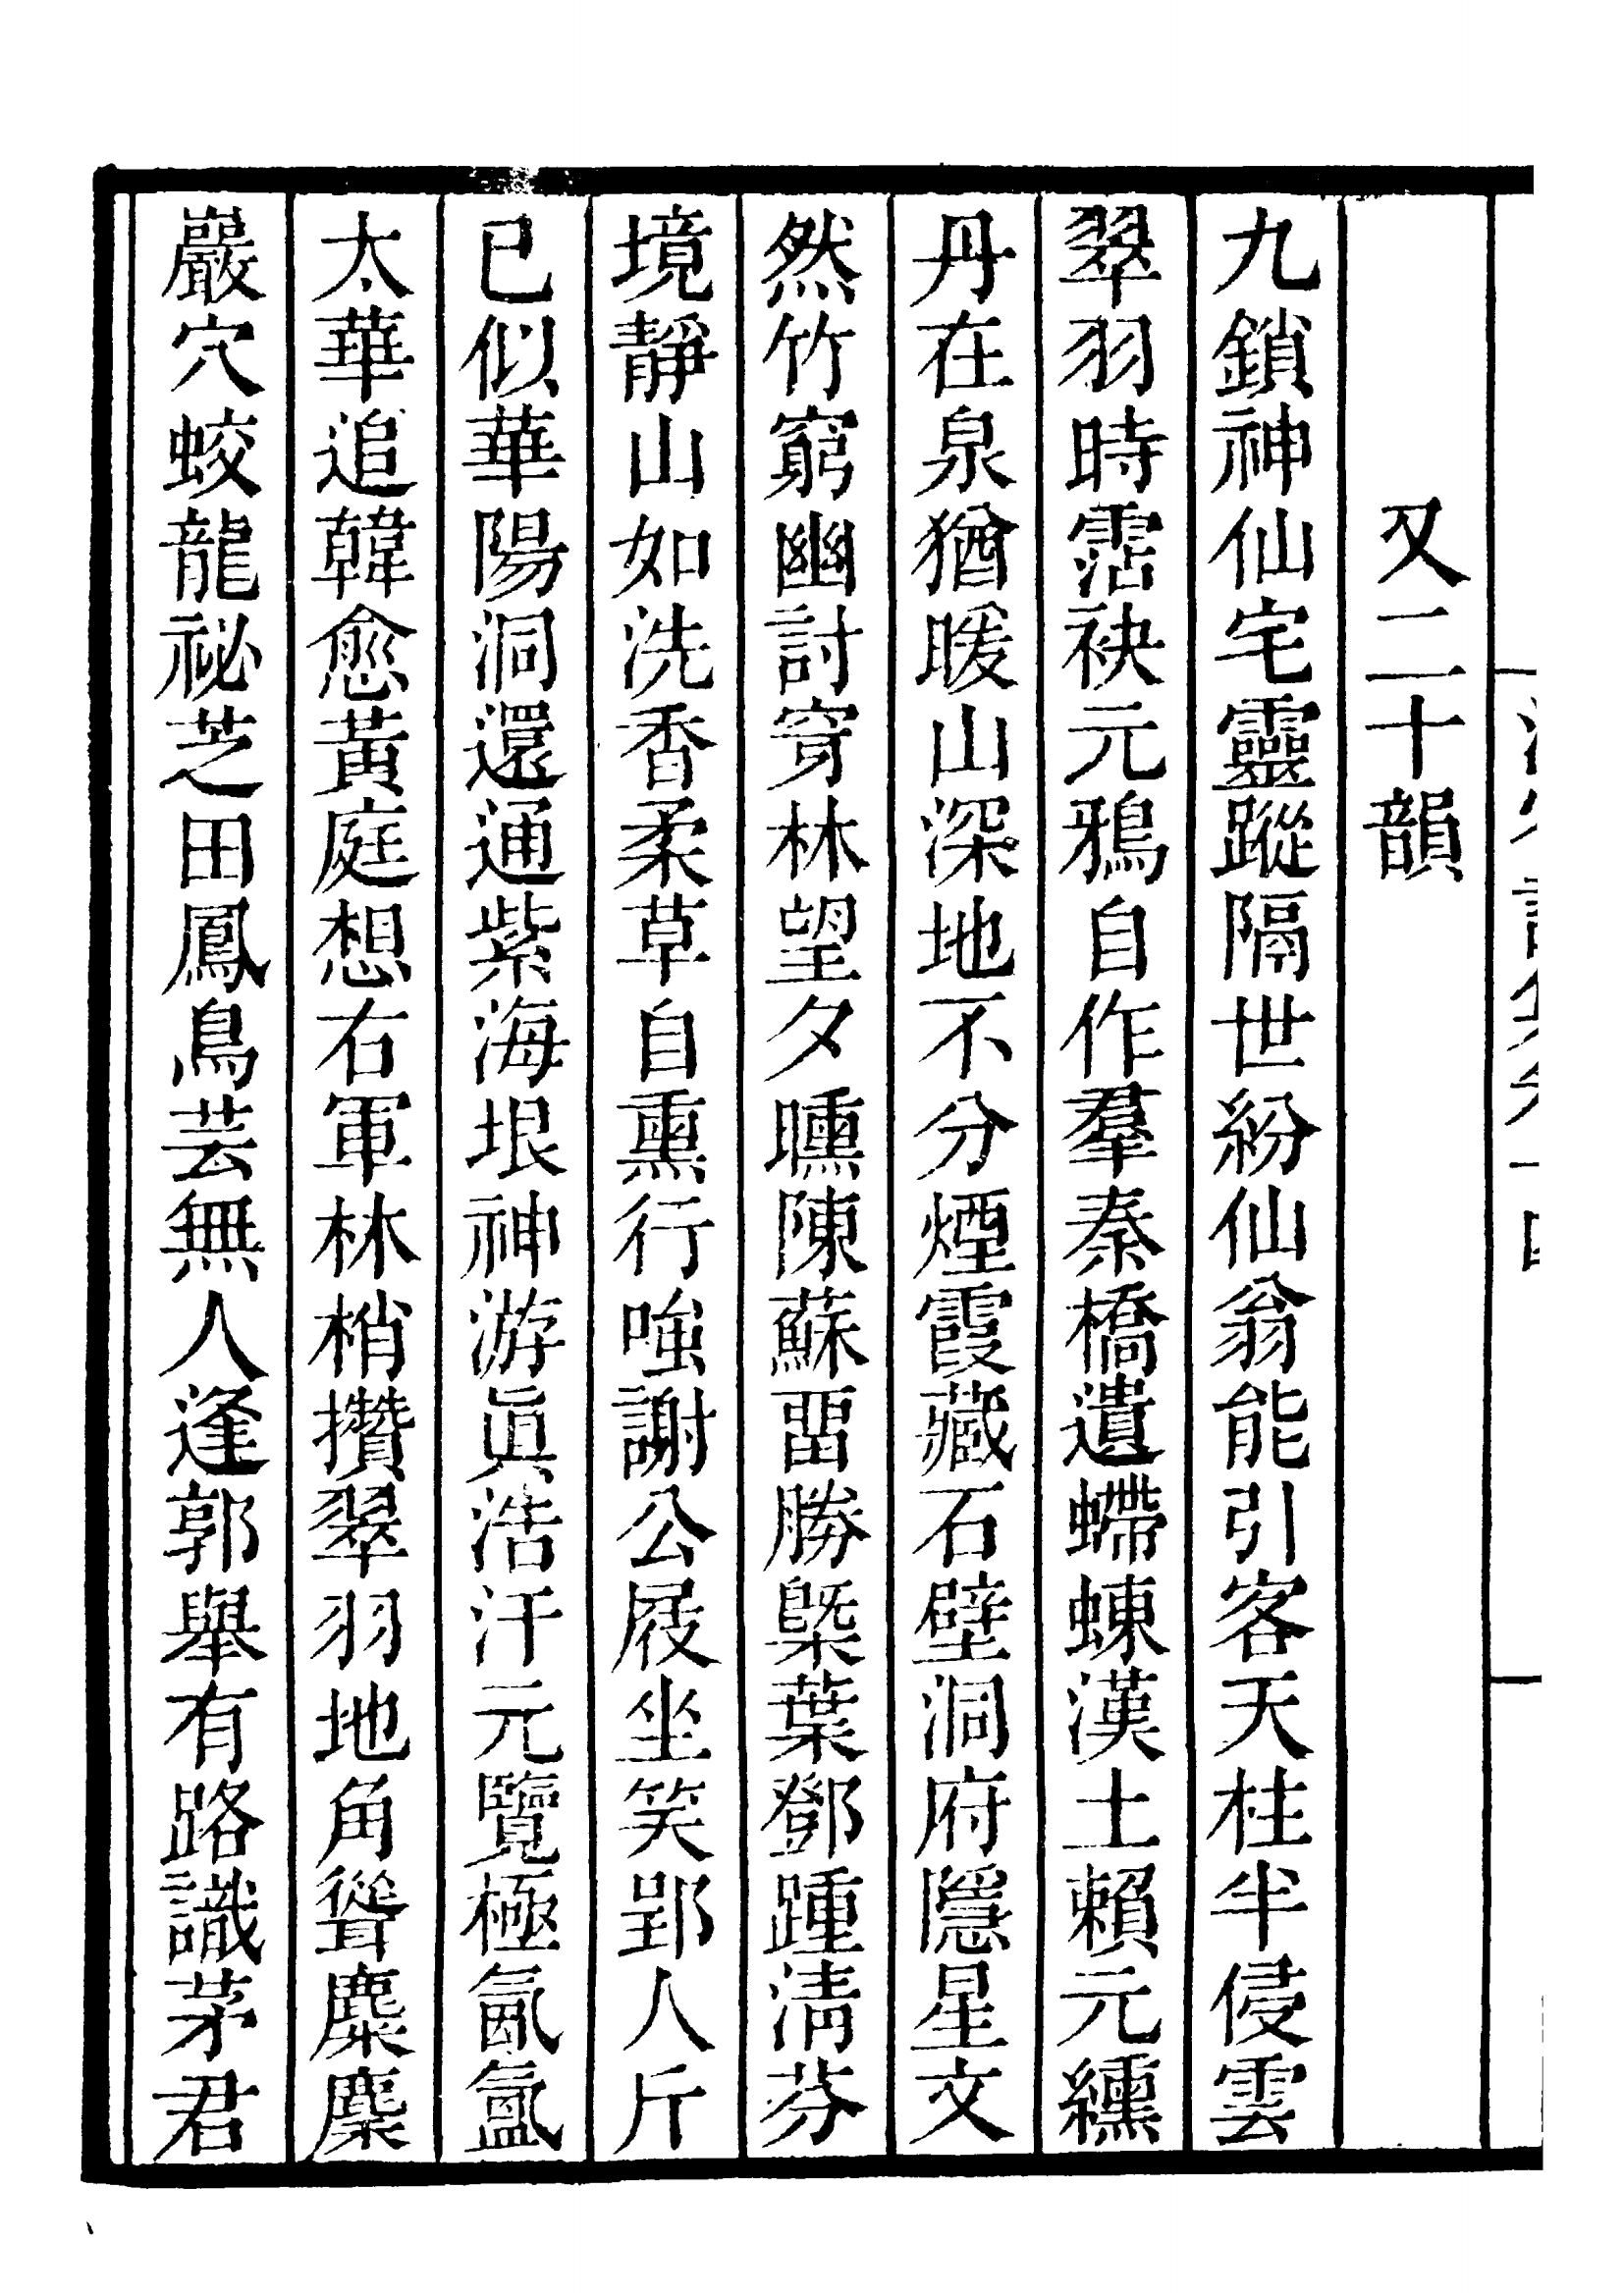 又二十韻
九鎖神仙宅靈蹤隔世紛仙翁能引客天柱半侵雲
翠羽時霑袂元鴉自作羣秦橋遺螮蝀漢土賴元纁
丹在泉猶暖山深地不分煙霞藏石壁洞府隱星文
然竹窮幽討穿林望夕曛陳蘇畱勝槩葉鄧踵清芬
境靜山如洗香柔草自熏行嗤謝公屐坐笑郢人斤
已似華陽洞還通紫海垠神游眞浩汗元覽極氤氳
太華追韓愈黃庭想右軍林梢攢翠羽地角聳麋麇
巖穴蛟龍祕芝田鳳鳥芸無人逢郭舉有路識茅君